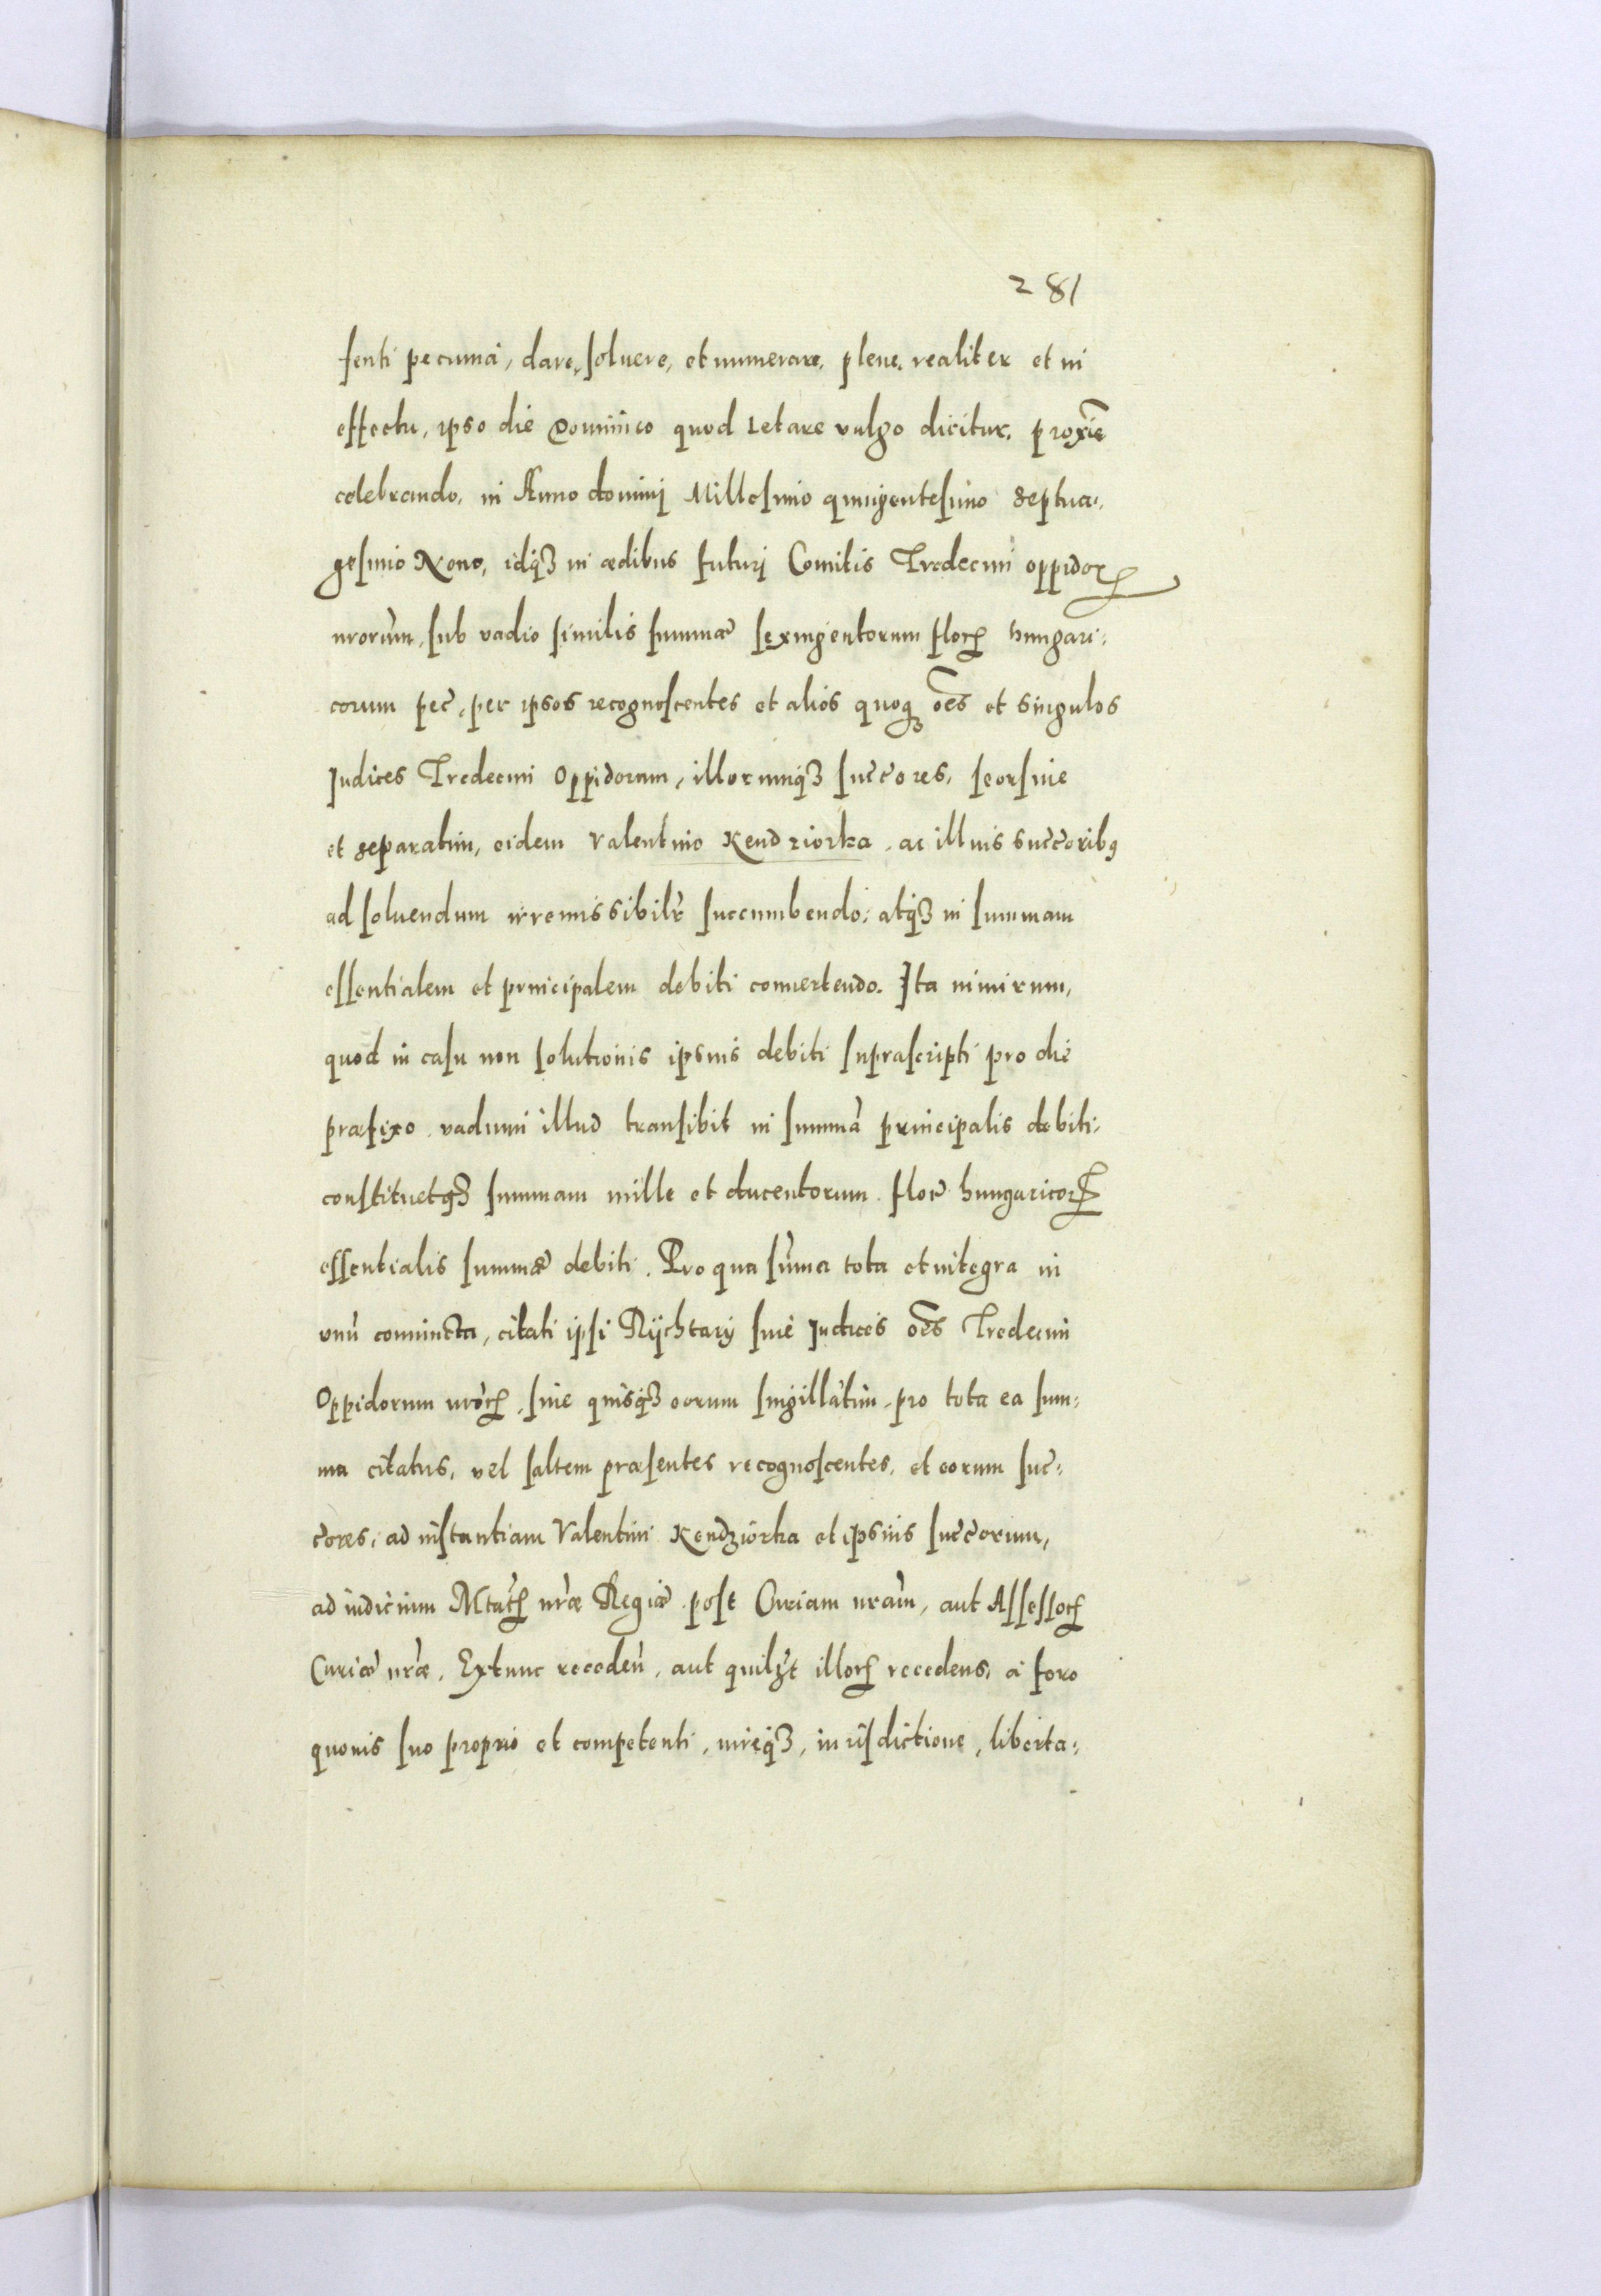 281
senti pecunia, dare, soluere, et numerare, plene, realiter et in
effectu, ipso die Dominico quod Letare vulgo dicitur, proxie
celebrando, in Anno domini Millesimo quingentesimo septua:
gesimo Nono, idqȝ in ædibus futuri Comitis Tredecim oppidorꝝ
nrorum, sub vadio similis summæ sexingentorum florꝝ hungari:
corum pec, per ipsos recognoscentes et alios quoqȝ oes et singulos
Judices Tredecim Oppidorum, illorumqȝ succores, seorsiue
et separatim, eidem Valentino Kendziorka, ac illius succoribꝰ
ad soluendum irremissibilr succumbendo, atqȝ in summam
essentialem et principalem debiti conuertendo. Ita nimirum,
quod in casu non solutionis ipsius debiti suprascripti pro die
præfixo, vadium illud transibit in summã principalis debiti,
constituetqȝ summam mille et ducentorum flor hungaricorꝝ
essentialis summæ debiti. Pro qua sũma tota et integra in
vnũ coniuncta, citati ipsi Rÿchtarÿ siue Judices oes Tredecim
Oppidorum nrorꝝ, siue quisqȝ eorum singillatim, pro tota ea sum:
ma citatus, vel saltem præsentes recognoscentes, et eorum suc:
cores, ad instantiam Valentini Kendziorka et ipsius succorum,
ad iudicium Mtatꝝ nræ Regiæ post Curiam nram, aut Assessorꝝ
Curiæ nræ, Extunc receden, aut quilȝt illorꝝ recedens, a foro
quouis suo proprio et competenti, iureqȝ, iurisdictione, liberta: